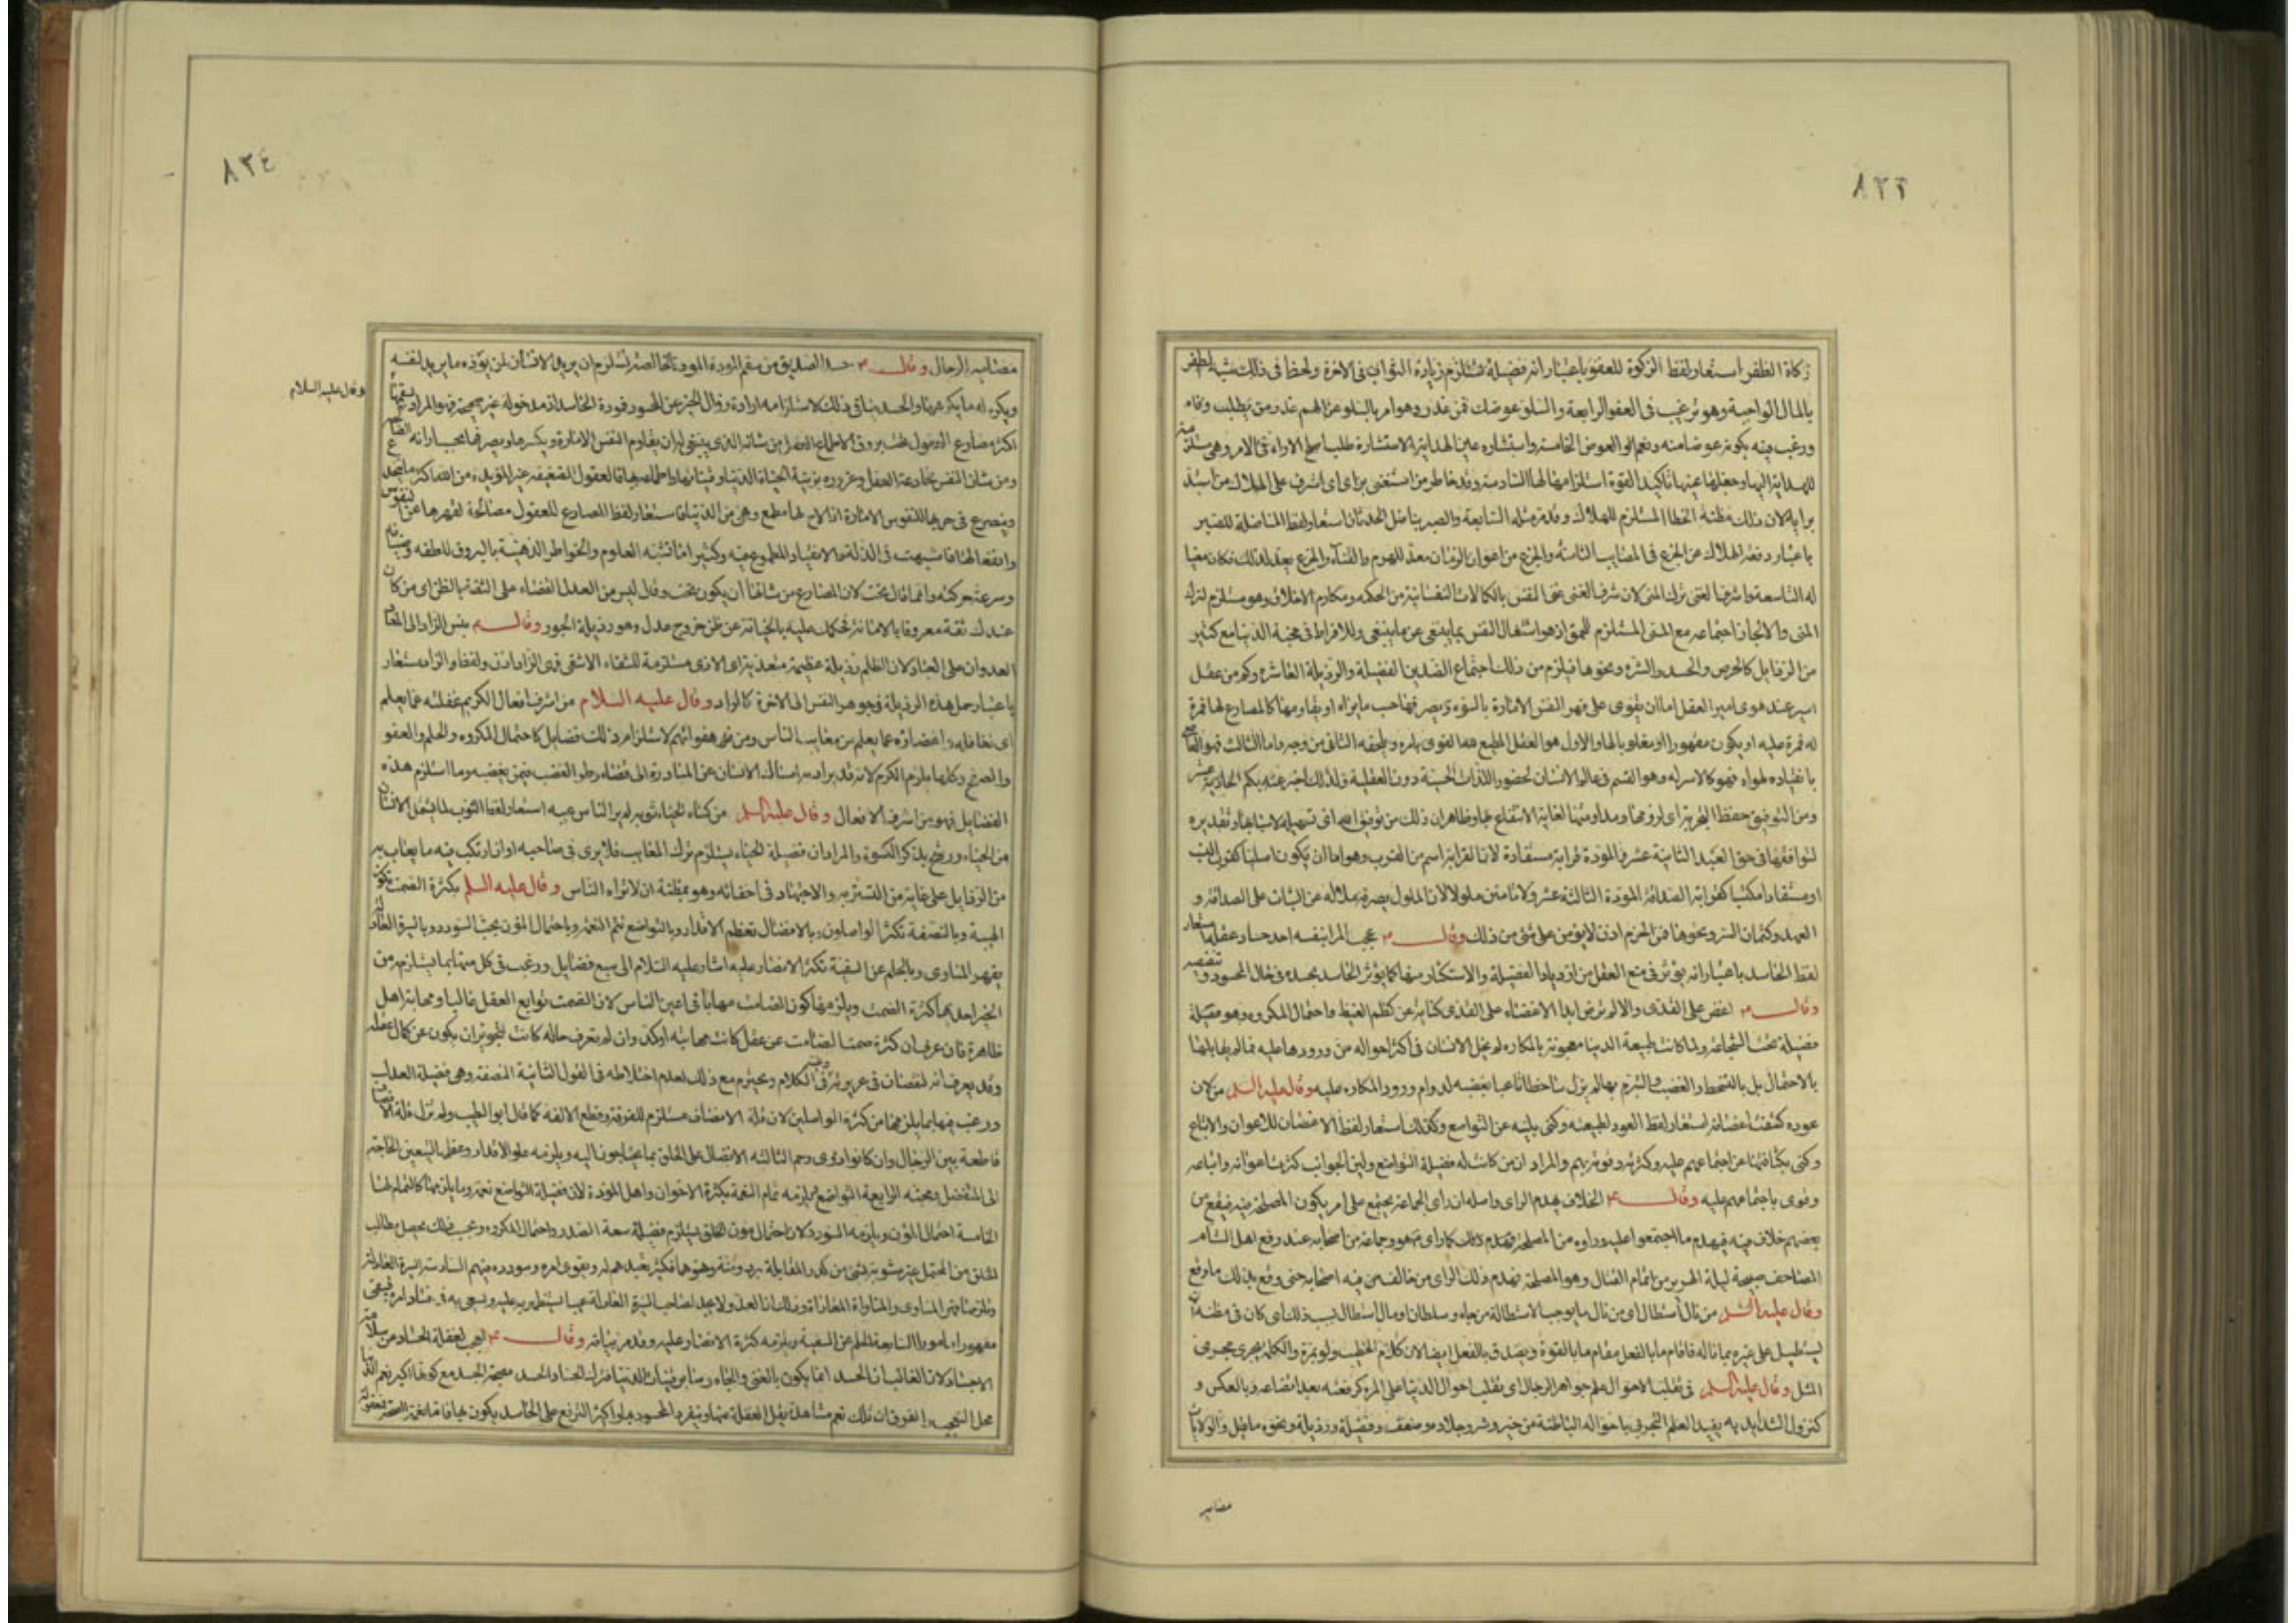 ٨٣٣
زكاة الظفر استعار لفظ الزكوة للعفو باعتبار انه فضيلة تستلزم زيادة الثواب فى الاخرة ولحظا فى ذلك شبه الظفر
بالمال الواجبة وهو ترغيب فى العفو الرابعة والسلو عوضك ممن غدر وهو امر بالسلو عن الهم عمن غدر من يطلب وفاه
ورغب فيه بكونه عوضا منه ونعم العوض الخامسة والاستشاره عين الهداية الاستشارة طلب اصلح الاراء فى الامر وهى مستلزمة
للهداية اليها وجعلها عينها تاكيدا لقوة استلزامها لها السادسة وقد خاطر من استغنى برايه اى اشرف على الهلاك من استبد
برايه لان ذلك مظنة الخطا المستلزم للهلاك وقد مر مثله السابعة والصبر يناضل الحدثان استعار لفظ المناضلة للصبر
باعتبار دفعه الهلاك عن الجزع فى المصايب الثامنة والجزع من اعوان الزمان معد للهرم والفناء والجزع يعد لذلك فكان معينا
له التاسعة واشرف الغنى ترك المنى لان شرف الغنى غنى النفس بالكمالات النفسانية من الحكمة ومكارم الاخلاق وهو مستلزم لترك
المنى والا لجاز اجتماعه مع المنى المستلزم للحمق اذ هو اشتغال النفس بما ينبغى عن ما ينبغى وللافراط فى محبة الدنيا مع كثير
من الرذايل كالحرص والحسد والشره ونحوها فيلزم من ذلك اجتماع الضدين الفضيلة والرذيلة العاشرة وكم من عقل
اسير عند هوى امير العقل اما ان يقوى على قهر النفس الامارة بالسوء ويصرفها حسب ما يراه او يقاومها كالمصارع لها فمرة
له فمرة عليه او يكون مقهورا او مغلوبا لها والاول هو العقل المطيع هذا القوى باره ويلحقه الثانى من وجه واما الثالث فهو العاصى
بانقياده لهواه فهو كالاسير له وهو القسم فى عالم الانسان لحضور اللذات الحسية دون العقلية ولذلك اخبر عنه بكم الحادية عشر
ومن التوفيق حفظ التجربة اى لزومها ومداومتها لغاية الانتفاع بها وظاهر ان ذلك من توفيق الله اى تسهيله لاسبابها وتقديره
لتوافقها فى حق العبد الثانية عشر المودة قرابة مستفادة لان القرابة اسم من القرب وهو اما ان يكون اصليا كقرب النسب
او مستفادا مكتسبا كقرابة الصداقة المودة الثالثة عشر ولا تامنن ملولا لان الملول يصرفه ملاله عن الثبات على الصداقة و
العهد وكتمان السر ونحوها فمن الحزم اذن الا يؤمن على شئ من ذلك وقال ع عجب المرء بنفسه احد حساد عقله استعار
لفظ الحاسد باعتبار انه يؤثر فى منع العقل من ازدياد الفضيلة والاستكثار منها كما يؤثر الحاسد بحسده فى حال المحسود و تنقيصه
وقال ع اغض على القذى والا لم ترض ابدا الاغضاء على القذى كناية عن كظم الغيظ واحتمال المكروه وهو فضيلة
فضيلة تحت الشجاعة ولما كانت طبيعة الدنيا معجونة بالمكاره لم يخل الانسان فى اكثر احواله من ورودها عليه فما لم يقابلها
بالاحتمال بل بالتسخط والغضب والتبرم بها لم يزل ساخطا تاعبا بغضبه لدوام ورود المكاره عليه وقال عليه السلم من لان
عوده كثفت اغصانه استعار لفظ العود لطبيعته وكنى بلينه عن التواضع وكذلك استعار لفظ الاغصان للاعوان والاتباع
وكنى بكثافتها عن اجتماعهم عليه وكثرته وقوته بهم والمراد ان من كانت له فضيلة التواضع ولين الجوانب كثرت اعوانه واتباعه
وقوى باجتماعهم عليه وقال ع الخلاف يهدم الراى واصله ان راى الجماعة يجتمع على امر يكون المصلحة فيه فيقع من
بعضهم خلاف فيه فيهدم ما اجتمعوا عليه وراوه من المصلحة فهدم ذلك كما راى ع هو وجماعة من اصحابه عند رفع اهل الشام
المصاحف صبيحة ليلة الهرير من اتمام القتال وهو المصلحة فهدم ذلك الراى من خالف من فيه اصحابه حتى وقع بذلك ما وقع
وقال عليه السلم من نال استطال اى من نال ما يوجب الاستطالة من جاه وسلطان او مال استطال بسبب ذلك اى كان فى مظنة ان
يستطيل على غيره بما ناله فاقام ما بالفعل مقام ما بالقوة ويصدق بالفعل ايضا لان كلام الخطيب ولو بمرة والكلة يجرى مجرى
المثل وقال عليه السلم فى تقلب الاحوال علم جواهر الرجال اى تقلب احوال الدنيا على المرء كرفعته بعد اتضاعه وبالعكس و
كنزول الشدايد به يفيد العلم التجربى باحواله الباطنة من خير وشر وجلادة وضعف وفضيلة ورذيلة ونحوه ما قيل والولايات
مضامير
٨٣٤
مضامير الرجال وقال ع حسد الصديق من سقم المودة المودة الخالصة تستلزم ان يريد الانسان لمن يوده ما يريد لنفسه
وقال عليه السلام
ويكره له ما يكره لها والحسد ينافى ذلك لاستلزامه ارادة زوال الخير عن المحسود فمودة الحاسد اذن مدخولة غير صحيحة فهو المراد بسقمها
اكثر مصارع العقول تحت بروق الاطماع العقل من شانه الذى ينبغى له ان يقاوم النفس الامارة ويكسرها ويصرفها بحسب ارائه الصالحة
ومن شان النفس مخادعة العقل وغروره بزينة الحياة الدنيا وقيناتها واطماعه بها فالعقول الضعيفة غير المؤيدة من الله اكثر ما تنخدع
وينصرع فى حربها للنفوس الامارة اذا لاح لها مطمع وهى من الدنيا فاستعار لفظ المصارع للعقول مصالحة لقهرها عن النفوس
وانفعالها لها فاشبهت فى الذلة والانقياد والمطموع فيه وكثيرا ما تشبه العلوم والخواطر الذهنية بالبروق للطفه وضيائه
وسرعة حركته وانما قال تحت لان المصارع من شانها ان يكون تحت وقال ليس من العدل القضاء على الثقة بالظن اى من كان
عندك ثقة معروفا بالامانة فحكمك عليه بالخيانة عن ظن خروج عدل وهو رذيلة الجور وقال ع بئس الزاد الى المعاد
العدوان على العباد لان الظلم رذيلة عظيمة متعدية اى الاذى مستلزمة للشقاء الاشقى فهى الزاد اذن ولفظ الزاد مستعار
باعتبار حمل هذه الرذيلة فى جوهر النفس الى الاخرة كالزاد وقال عليه السلام من اشرف افعال الكريم غفلته عما يعلم
اى تغافله واغضاؤه عما يعلم من معايب الناس ومن غير هفواتهم لاستلزام ذلك فضايل كاحتمال المكروه والحلم والعفو
والصفح وكلها يلزم الكرم لانه قد يراد به امساك الانسان عن المبادرة الى قضاء وطر الغضب فيمن يغضبه وما استلزم هذه
الفضايل فهو من اشرف الافعال وقال عليه السلم من كساه الحياء ثوبه لم ير الناس عيبه استعار لفظ الثوب لما يشمل الانسان
من الحياء ورشح بذكر الكسوة والمراد ان فضيلة الحياء يستلزم ترك المعايب فلا يرى فى صاحبه او ان ارتكب فيه ما يعاب به
من الرذايل على غاية من التستر به والاجتهاد فى اخفائه وهو بمظنة ان لا تراه الناس وقال عليه السلم بكثرة الصمت تكون
الهيبة وبالنصفة تكثر الواصلون وبالافضال تعظم الاقدار وبالتواضع تتم النعمة وباحتمال المؤن يجب السودد وبالسيرة العادلة
يقهر المناوى وبالحلم عن السفيه تكثر الانصار عليه اشار عليه السلام الى سبع فضايل ورغب فى كل منها بما يستلزمه من
الخير احدها كثرة الصمت ويلزمها كون الصامت مهابا فى اعين الناس لان الصمت توابع العقل غالبا ومهابة اهل
ظاهرة فان عرف ان كثرة صمت الصامت عن عقل كانت مهابته اوكد وان لم تعرف حاله كانت لتجويز ان يكون عن كمال عقله
وقد يعرف انه لنقصان فى غريزته فى الكلام ويحترم مع ذلك لعدم اختلاطه فى القول الثانية النصفة وهى فضيلة العدل
ورغب فيها بما يلزمها من كثرة الواصلين لان قلة الانصاف مستلزم للفرقة وقطع الالفة كما قال ابو الطيب ولم تزل قلة الانصاف
قاطعة بين الرجال وان كانوا ذوى رحم الثالثة الافضال على الخلق بما يحتاجون اليه ويلزمه علو الاقدار وعظمها لتعين الحاجة
الى المتفضل ومحبته الرابعة التواضع ويلزمه تمام النعمة بكثرة الاخوان واهل المودة لان فضيلة التواضع نعمة وما يلزمها كالتمام لها
الخامسة احتمال المؤن ويلزمه السودد لان احتمال مؤن الخلق يستلزم فضيلة سعة الصدر واحتمال المكروه وبحسب ذلك يحصل مطالب
الخلق من المحتمل غير مشوبة بشئ من كدر المقابلة برد ومنة ونحوها فيكثر تعبدهم له ويقوى امره وسودده فيهم السادسة السيرة العادلة
ويلزمها قهر المناوى والمناواة المعاداة وذلك ان العدو لا يجد لصاحب السيرة العادلة عيبا يستظهر به عليه ويسعى به فى فساد امره فيبقى
مقهورا مامورا السابعة الحلم عن السفيه ويلزمه كثرة الانصار عليه وقد مر بيانه وقال ع العجب لغفلة الحساد عن سلامة
الاجساد لان الغالب ان الحسد انما يكون بالغنى والجاه وساير قينات الدنيا فترك الحساد الحسد بصحة الجسد مع كونها اكبر نعم الدنيا
محل التعجب